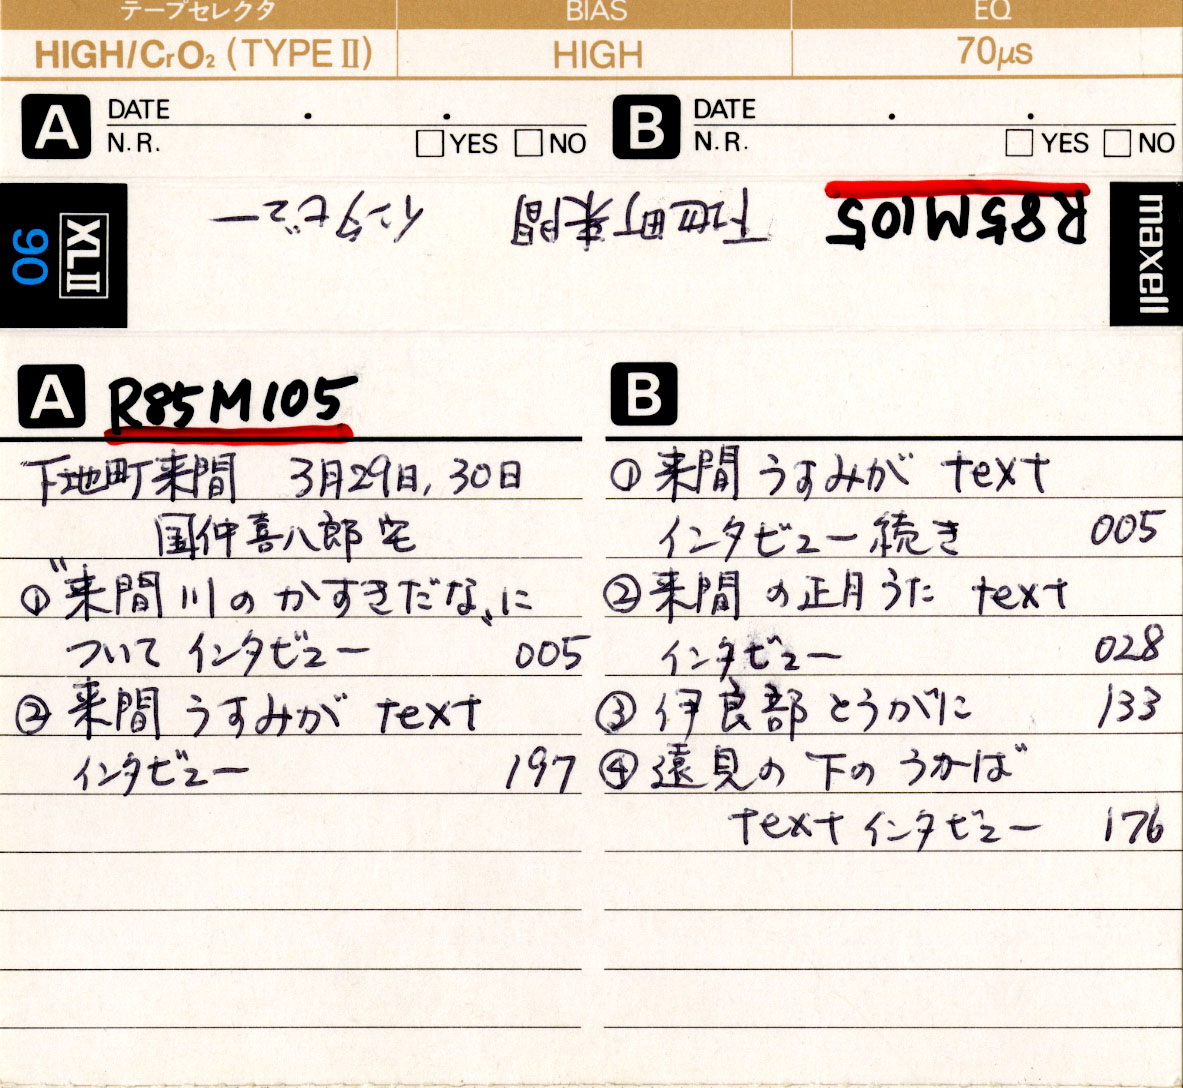 テープセレクタ BIAS EQ
HIGH/CrO₂ (TYPE II) HIGH 70μs
A DATE . . B DATE . .
N.R. YES NO N.R. YES NO
R85M105 下地町来間 インタビュー
XLII 90
maxell
A R85M105
下地町来間 3月29日, 30日
国仲喜八郎宅
①"来間川のかすきだな"に
ついて インタビュー 005
② 来間 うすみが text
インタビュー 197
B
① 来間 うすみが text
インタビュー続き 005
② 来間 の正月うた text
インタビュー 028
③ 伊良部 とうがに 133
④ 遠見の下の うかば
text インタビュー 176